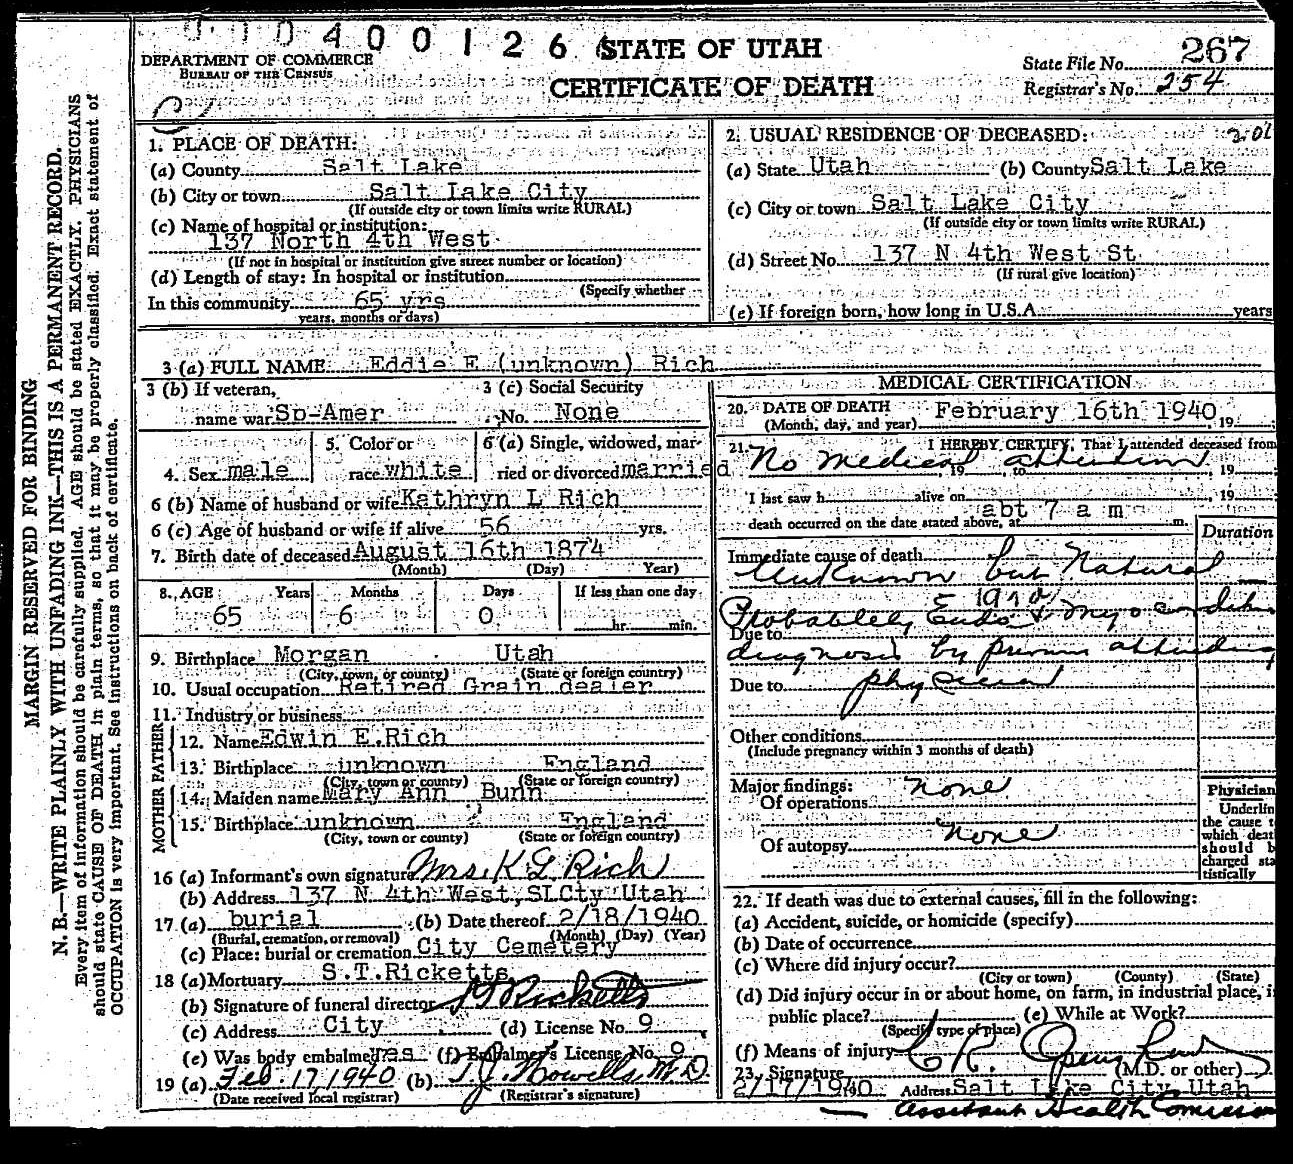 0 0 0 4 0 0 1 2 6
STATE OF UTAH
CERTIFICATE OF DEATH
DEPARTMENT OF COMMERCE
BUREAU OF THE CENSUS
State File No. 267
Registrar's No. 254
MARGIN RESERVED FOR BINDING
N. B.—WRITE PLAINLY WITH UNFADING INK—THIS IS A PERMANENT RECORD.
Every item of information should be carefully supplied. AGE should be stated EXACTLY. PHYSICIANS
should state CAUSE OF DEATH in plain terms, so that it may be properly classified. Exact statement of
OCCUPATION is very important. See instructions on back of certificate.
1. PLACE OF DEATH:
(a) County Salt Lake
(b) City or town Salt Lake City
(If outside city or town limits write RURAL)
(c) Name of hospital or institution:
137 North 4th West
(If not in hospital or institution give street number or location)
(d) Length of stay: In hospital or institution
(Specify whether
In this community 65 yrs
years, months or days)
2. USUAL RESIDENCE OF DECEASED:
(a) State Utah (b) County Salt Lake
(c) City or town Salt Lake City
(If outside city or town limits write RURAL)
(d) Street No. 137 N 4th West St
(If rural give location)
(e) If foreign born, how long in U.S.A. years
3 (a) FULL NAME Eddie E (unknown) Rich
3 (b) If veteran,
name war Sp-Amer
3 (c) Social Security
No. None
4. Sex male
5. Color or
race white
6 (a) Single, widowed, mar-
ried or divorced married
6 (b) Name of husband or wife Kathryn L Rich
6 (c) Age of husband or wife if alive 56 yrs.
7. Birth date of deceased August 16th 1874
(Month) (Day) Year)
8. AGE Years Months Days If less than one day
65 6 0 hr. min.
9. Birthplace Morgan Utah
(City, town, or county) (State or foreign country)
10. Usual occupation Retired Grain dealer
11. Industry or business
FATHER
12. Name Edwin E.Rich
13. Birthplace unknown England
(City, town or county) (State or foreign country)
MOTHER
14. Maiden name Mary Ann Bunn
15. Birthplace unknown England
(City, town or county) (State or foreign country)
16 (a) Informant's own signature Mrs. K L Rich
(b) Address 137 N 4th West, SLCty Utah
17 (a) burial (b) Date thereof 2/18/1940
(Burial, cremation, or removal) (Month) (Day) (Year)
(c) Place: burial or cremation City Cemetery
18 (a) Mortuary S.T.Ricketts
(b) Signature of funeral director S T Ricketts
(c) Address City (d) License No. 9
(e) Was body embalmed yes (f) Embalmer's License No. 9
19 (a) Feb. 17, 1940 (b) T. J. Howells, M.D.
(Date received local registrar) (Registrar's signature)
MEDICAL CERTIFICATION
20. DATE OF DEATH February 16th 1940, 19
(Month, day, and year)
21. I HEREBY CERTIFY, That I attended deceased from
No medical attention, 19 to , 19
I last saw h alive on , 19
death occurred on the date stated above, at abt 7 a m m.
Duration
Immediate cause of death
Unknown but Natural
Probablely Endo &
Due to
diagnosis by previous attending
Due to physician
Other conditions
(Include pregnancy within 3 months of death)
Major findings:
Of operations none
Of autopsy none
Physician
Underlin
the cause t
which deat
should b
charged sta
tistically
22. If death was due to external causes, fill in the following:
(a) Accident, suicide, or homicide (specify)
(b) Date of occurrence
(c) Where did injury occur?
(City or town) (County) (State)
(d) Did injury occur in or about home, on farm, in industrial place, i
public place? (e) While at Work?
(Specify type of place)
(f) Means of injury
23. Signature C R. (M.D. or other)
2/17/1940 Address Salt Lake City Utah
Assistant Health